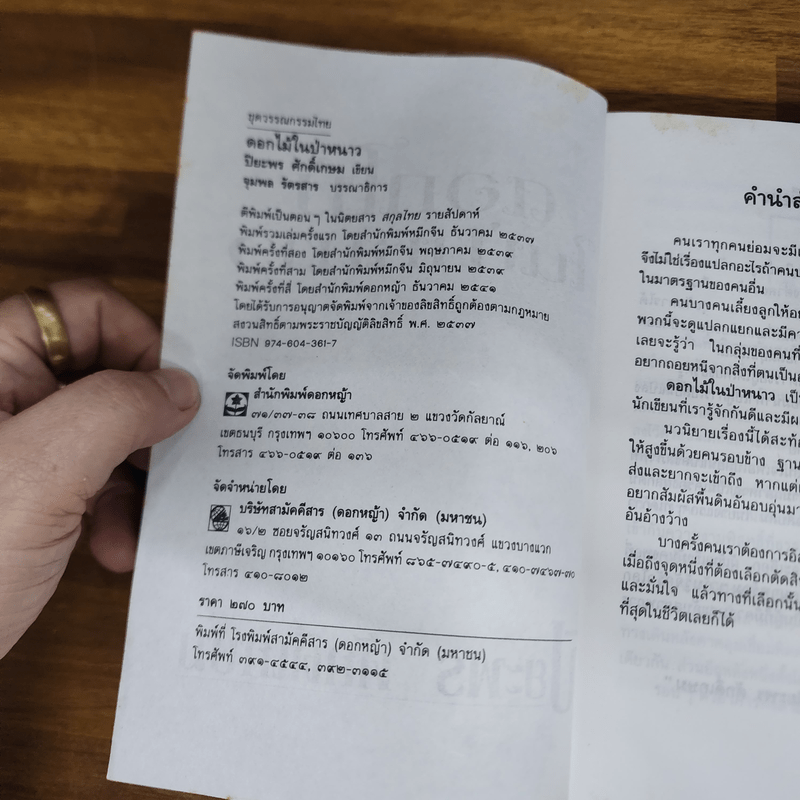 ชุดวรรณกรรมไทย
ดอกไม้ในป่าหนาว
ปิยะพร ศักดิ์เกษม เขียน
จุมพล รัตรสาร บรรณาธิการ
ตีพิมพ์เป็นตอน ๆ ในนิตยสาร สกุลไทย รายสัปดาห์
พิมพ์รวมเล่มครั้งแรก โดยสำนักพิมพ์หมึกจีน ธันวาคม ๒๕๓๗
พิมพ์ครั้งที่สอง โดยสำนักพิมพ์หมึกจีน พฤษภาคม ๒๕๓๙
พิมพ์ครั้งที่สาม โดยสำนักพิมพ์หมึกจีน มิถุนายน ๒๕๓๙
พิมพ์ครั้งที่สี่ โดยสำนักพิมพ์ดอกหญ้า ธันวาคม ๒๕๔๑
โดยได้รับการอนุญาตจัดพิมพ์จากเจ้าของลิขสิทธิ์ถูกต้องตามกฎหมาย
สงวนสิทธิ์ตามพระราชบัญญัติลิขสิทธิ์ พ.ศ. ๒๕๓๗
ISBN 974-604-361-7
จัดพิมพ์โดย
สำนักพิมพ์ดอกหญ้า
๗๑/๓๗-๓๘ ถนนเทศบาลสาย ๒ แขวงวัดกัลยาณ์
เขตธนบุรี กรุงเทพฯ ๑๐๖๐๐ โทรศัพท์ ๔๖๖-๐๕๑๙ ต่อ ๑๑๖, ๒๐๖
โทรสาร ๔๖๖-๐๕๑๙ ต่อ ๑๓๖
จัดจำหน่ายโดย
บริษัทสามัคคีสาร (ดอกหญ้า) จำกัด (มหาชน)
๑๖/๒ ซอยจรัญสนิทวงศ์ ๑๓ ถนนจรัญสนิทวงศ์ แขวงบางแวก
เขตภาษีเจริญ กรุงเทพฯ ๑๐๑๖๐ โทรศัพท์ ๘๖๕-๗๔๙๐-๕, ๔๑๐-๗๔๖๗-๗๐
โทรสาร ๔๑๐-๘๐๑๒
ราคา ๒๗๐ บาท
พิมพ์ที่ โรงพิมพ์สามัคคีสาร (ดอกหญ้า) จำกัด (มหาชน)
โทรศัพท์ ๓๙๑-๔๕๔๔, ๓๙๒-๓๑๑๕
คำนำ
คนเราทุกคนย่อมจะมี
จึงไม่ใช่เรื่องแปลกอะไรถ้าคน
ในมาตรฐานของคนอื่น
คนบางคนเลี้ยงลูกให้
พวกนี้จะดูแปลกแยกและมี
เลยจะรู้ว่า ในกลุ่มของคนที่
อยากถอยหนีจากสิ่งที่ตนเป็น
ดอกไม้ในป่าหนาว
นักเขียนที่เรารู้จักกันดีและมี
นวนิยายเรื่องนี้ได้
ให้สูงขึ้นด้วยคนรอบข้าง
ส่งและยากจะเข้าถึง หากแต่
อยากสัมผัสพื้นดินอันอบอุ่น
อันอ้างว้าง
บางครั้งคนเราต้องการ
เมื่อถึงจุดหนึ่งที่ต้องเลือก
และมั่นใจ แล้วทางที่เลือกนั้น
ที่สุดในชีวิตเลยก็ได้